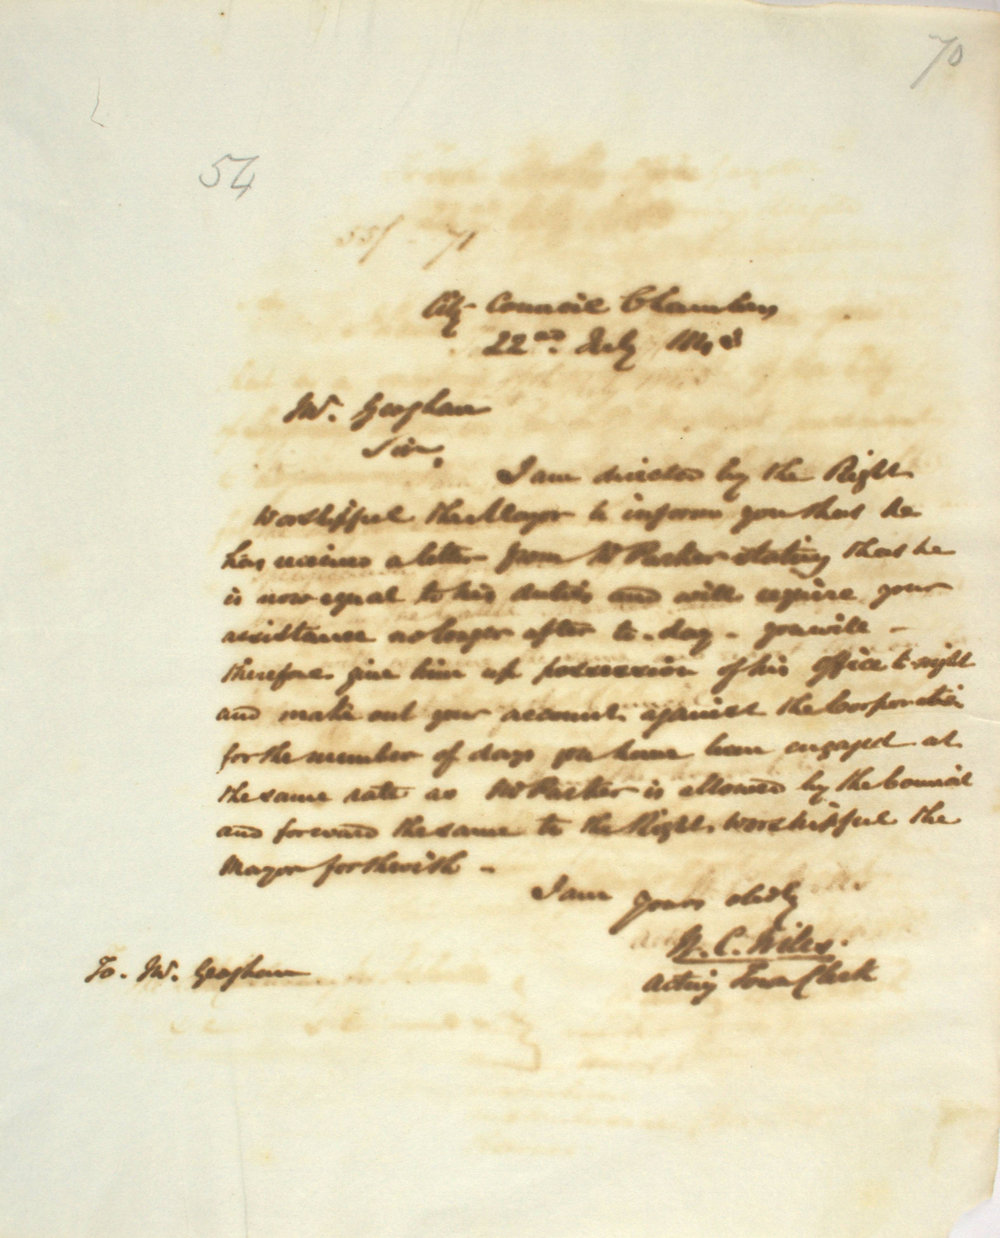 70
54
55/- 71
City Council Chambers
22nd July
Mr. Geoghan
Sir,
I am directed by the Right
Worshipful the Mayor to inform you that he
has received a letter from Mr Parker stating that he
is now equal to his duties and will require your
assistance no longer after to-day - you will -
therefore give him up possession of his office to-night
and make out your account against the Corporation
for the number of days you have been engaged at
the same rate as Mr Parker is allowed by the Council
and forward the same to the Right Worshipful the
Mayor forthwith -
I am yours obtly
W. C. Wiles.
acting Town Clerk
To. Mr. Geoghan